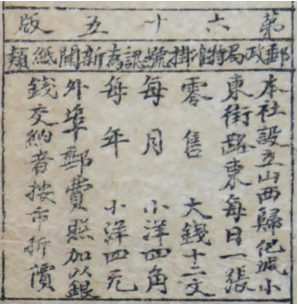 第六十五版
郵政局特准掛號認為新聞紙類
本社設立山西歸化城小
東街路東每日一張
零售　大錢十二文
每月　小洋四角
每年　小洋四元
外埠郵費照加以銀
錢交納者按市折價